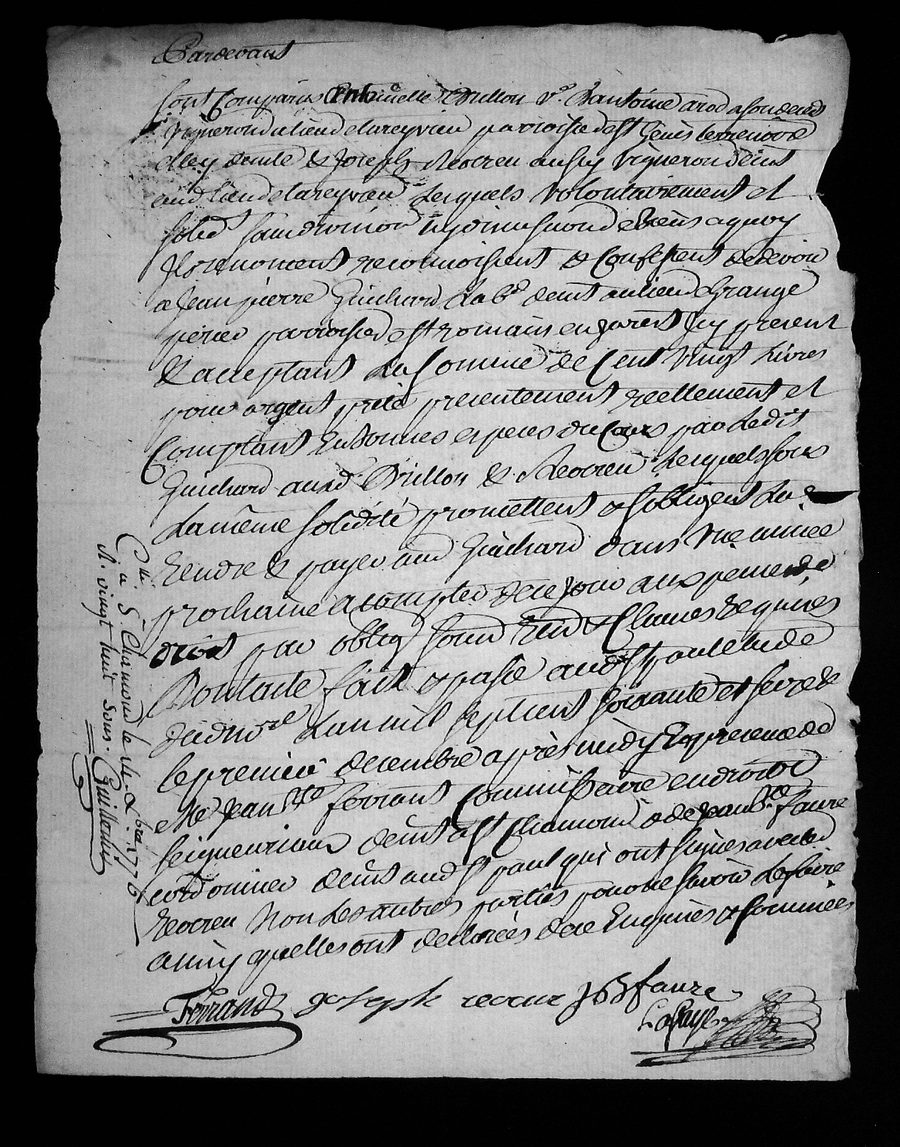 Pardevant
sont Comparus Antoinette Drillon v.e d'antoine arod a son deceds
vigneron du lieu de lareyrieu parroisse de st Genis terrenoire
elley demte & Joseph Reocreu aussy vigneron demt
aud lieu de lareyrieu Lesquels volontairement et
solidt sans division ny discussion de biens a quoy
Ils renoncent reconnoissent & Confessent de devoir
a Jean pierre Guichard Labr demt au lieu de Grange
perier parroisse de st romain en jarest Icy present
& acceptant La Somme de Cent vingt Livres
pour argent prêté presentement reellement et
Comptant En bonnes especes du Cours par Ledit
Guichard auxd Drillon & Reocreu Lesquels sous
La même solidité promettent & s'obligent La
rendre & payer aud Guichard dans une année
prochaine a compter de ce jour aux peines de
droit par obligon soumon renon & Clauses requises
Dont acte fait & passé aud st paul etude
dud nore L'an mil sept cent soixante et seize &
le premier decembre après midy En presence de
Me Jean Bte ferrant Commissaire en droits
seigneuriaux demt a St Chamond & de Jean Bte faure
cordonnier demt aud st paul qui ont signé avec led
reocreu non Les autres parties pour ne savoir Le faire
ainsy quelles ont declarées de ce Enquises & sommées
Ferrand joseph reocreux JB faure
Lafaye
Cllé a St Chamond le 14 Xbre 1776
R. vingt huit sous. Guillemin